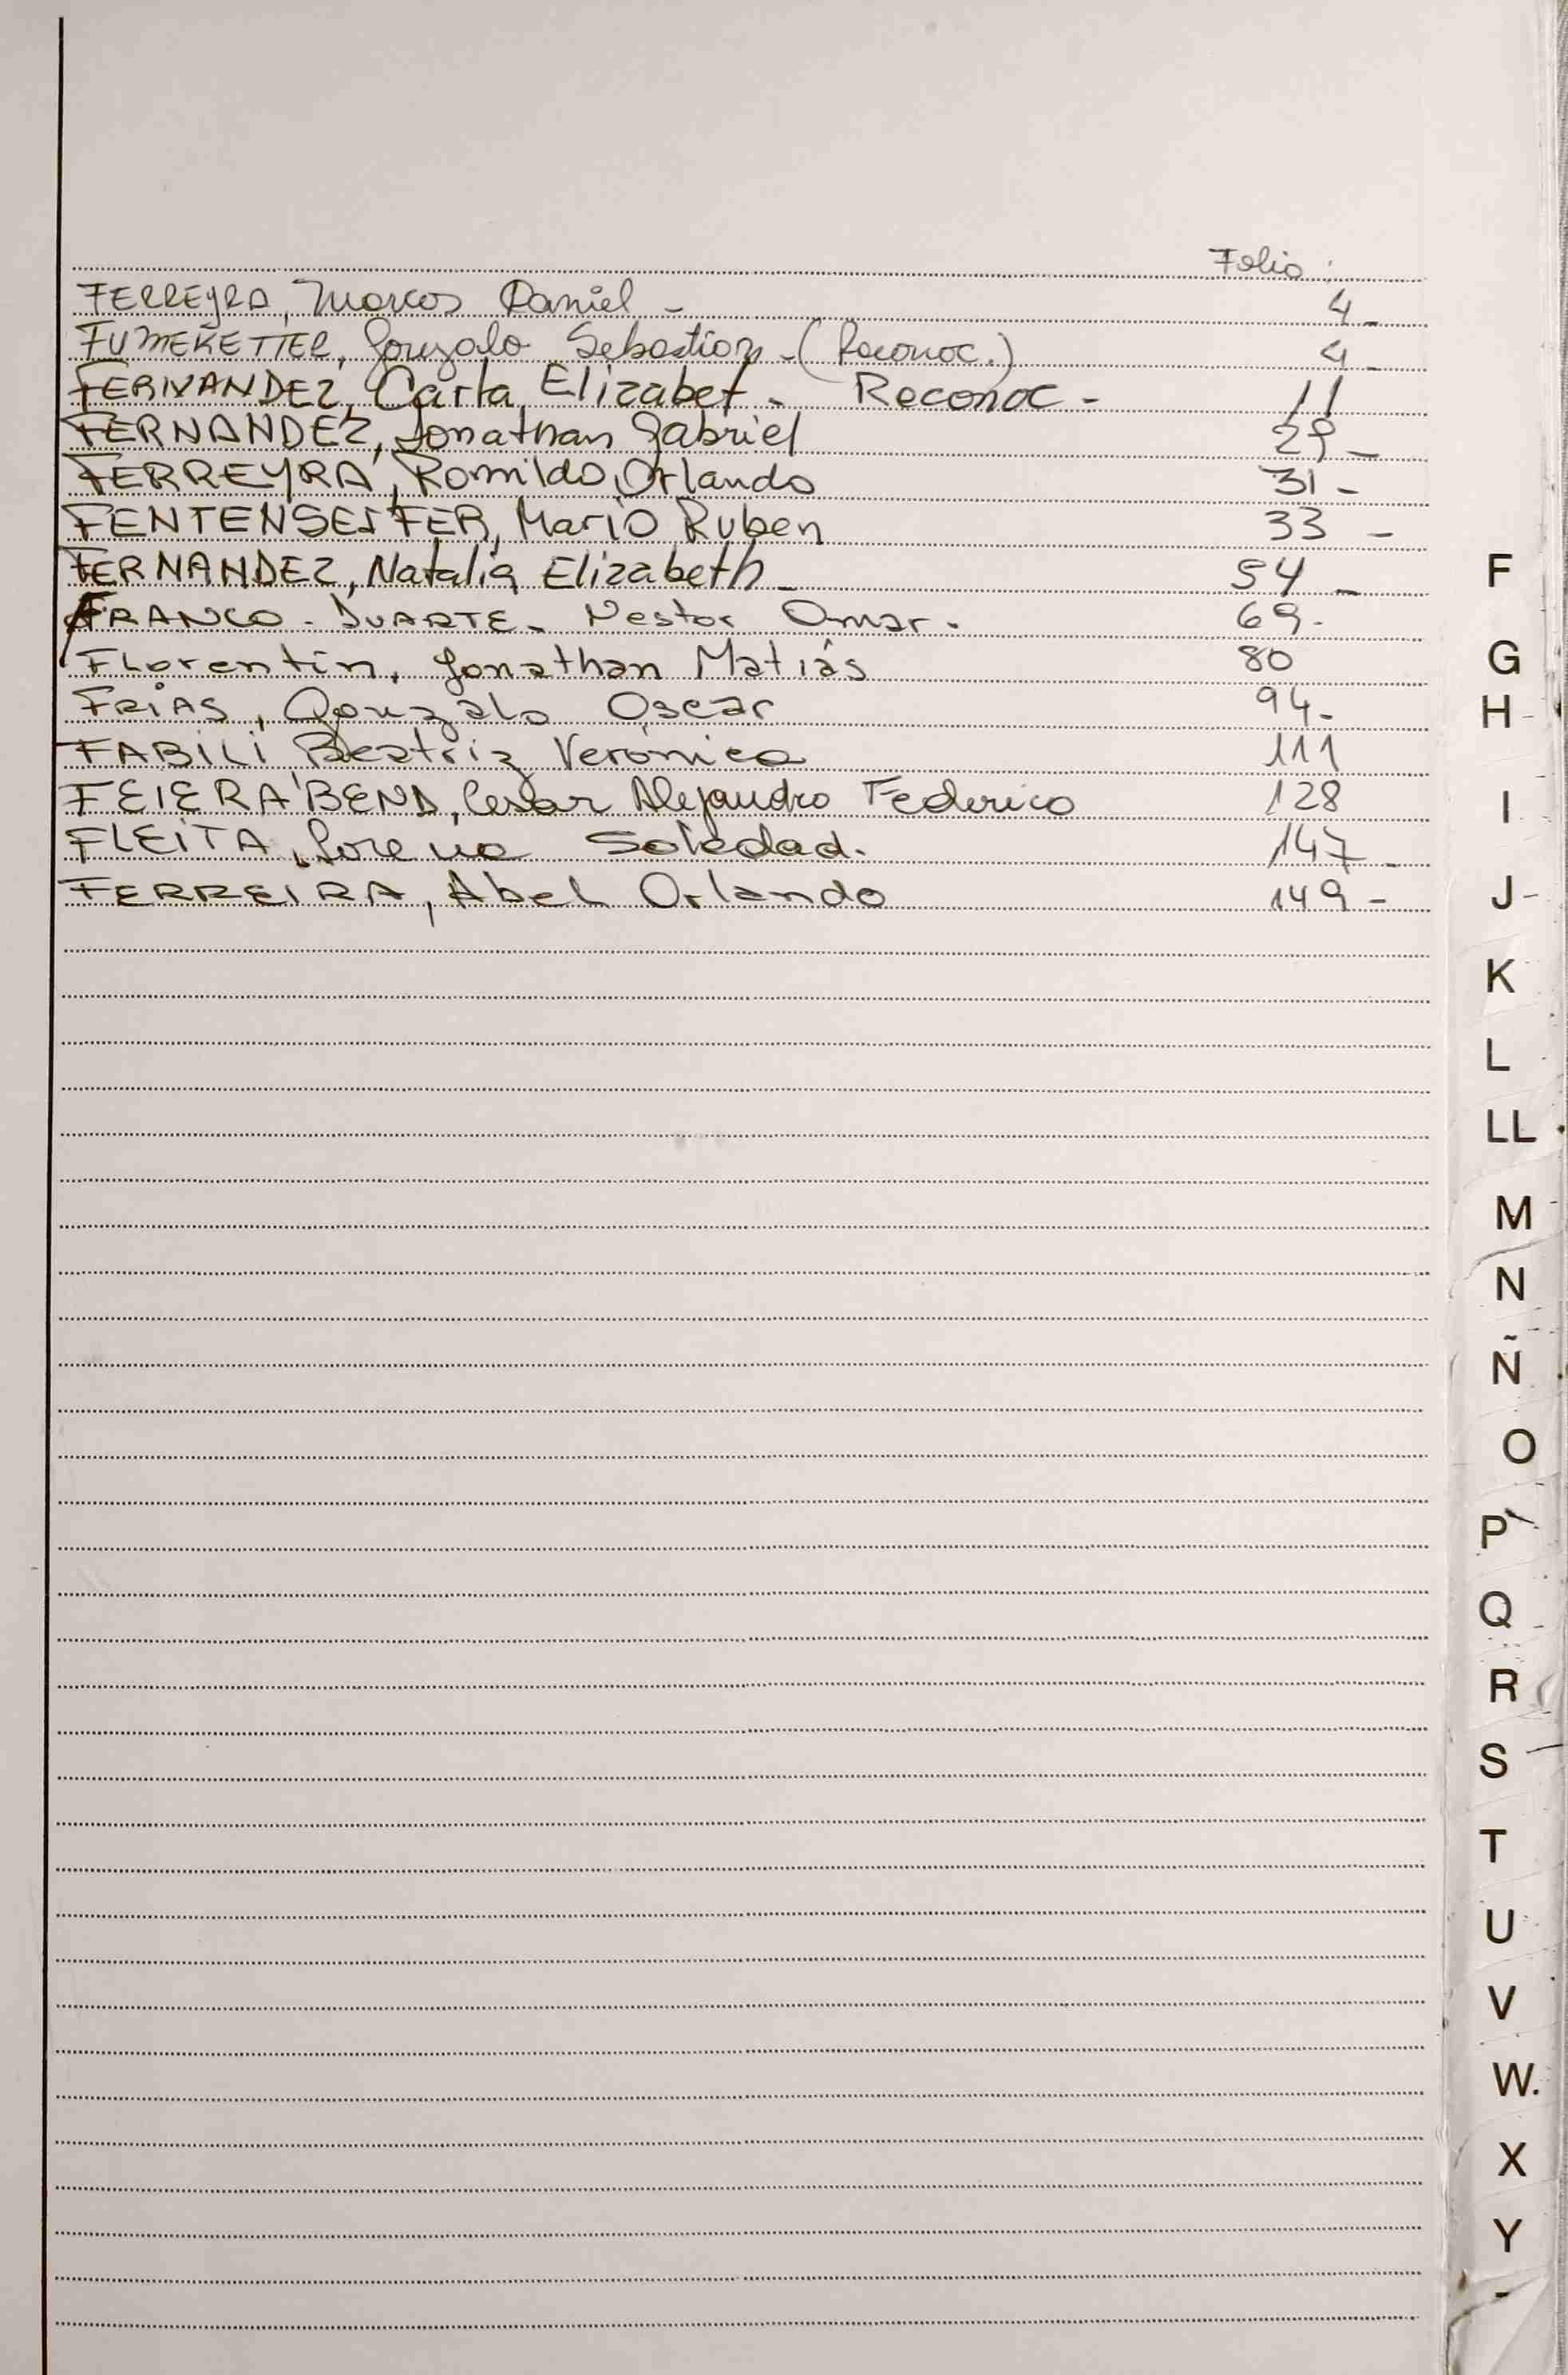 Folio:
FERREYRA, Marcos Daniel - 4-
FUMEKETTER, Gonzalo Sebastian - (Reconoc.) 4-
FERNANDEZ, Carla Elizabet - Reconoc - 11
FERNANDEZ, Jonathan Gabriel 29-
FERREYRA, Romildo Orlando 31-
FENTENSEIFER, Mario Ruben 33-
FERNANDEZ, Natalia Elizabeth - 54-
FRANCO - DUARTE - Nestor Omar. 69-
Florentín, Jonathan Matiás 80
FRIAS, Gonzalo Oscar 94-
FABILI Beatriz Verónica 111
FEIERABEND, Cesar Alejandro Federico 128
FLEITA, Lorena Soledad. 147-
FERREIRA, Abel Orlando 149-
F
G
H
I
J
K
L
LL
M
N
Ñ
O
P
Q
R
S
T
U
V
W.
X
Y